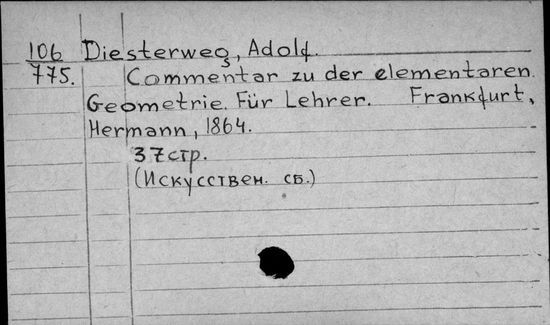 106 Diesterweg, Adolf.
775. Commentar zu der elementaren
Geometrie. Für Lehrer. Frankfurt,
Hermann, 1864.
37стр.
(Искусствен. сб.)